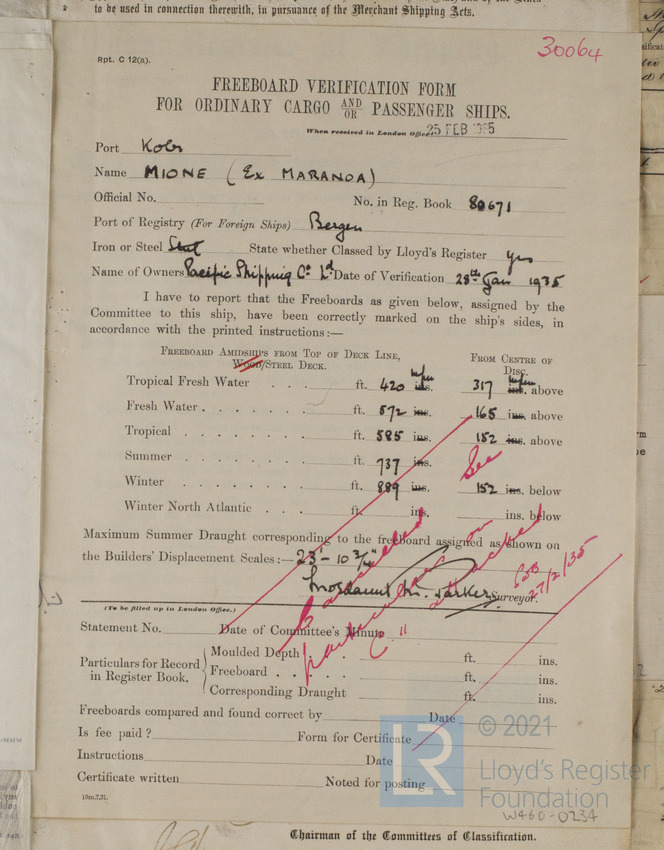 to be used in connection therewith, in pursuance of the Merchant Shipping Acts.
30064
Rpt. C 12(a).
FREEBOARD VERIFICATION FORM
FOR ORDINARY CARGO AND/OR PASSENGER SHIPS.
When received in London Office 25 FEB 1935
Port Kobe
Name MIONE (Ex MARANOA)
Official No. No. in Reg. Book 80671
Port of Registry (For Foreign Ships) Bergen
Iron or Steel Steel State whether Classed by Lloyd's Register yes
Name of Owners Pacific Shipping Co. Ld. Date of Verification 28th Jan 1935
I have to report that the Freeboards as given below, assigned by the
Committee to this ship, have been correctly marked on the ship's sides, in
accordance with the printed instructions:—
FREEBOARD AMIDSHIPS FROM TOP OF DECK LINE, FROM CENTRE OF
WOOD/STEEL DECK. DISC.
Tropical Fresh Water ft. 420 ins. m/m 317 ins. m/m above
Fresh Water ft. 572 ins. 165 ins. above
Tropical ft. 585 ins. 152 ins. above
Summer ft. 737 ins.
Winter ft. 889 ins. 152 ins. below
Winter North Atlantic ft. ins. ins. below
Maximum Summer Draught corresponding to the freeboard assigned as shown on
the Builders' Displacement Scales:— 23' - 10 3/4"
Surveyor.
Cancelled See
particulars on attached
C 11
27/2/35
(To be filled up in London Office.)
Statement No. Date of Committee's Minute
Particulars for Record in Register Book.
Moulded Depth ft. ins.
Freeboard ft. ins.
Corresponding Draught ft. ins.
Freeboards compared and found correct by Date
Is fee paid? Form for Certificate
Instructions Date
Certificate written Noted for posting
10m.7.31.
LR
© 2021
Lloyd's Register
Foundation
W460-0234
Chairman of the Committees of Classification.